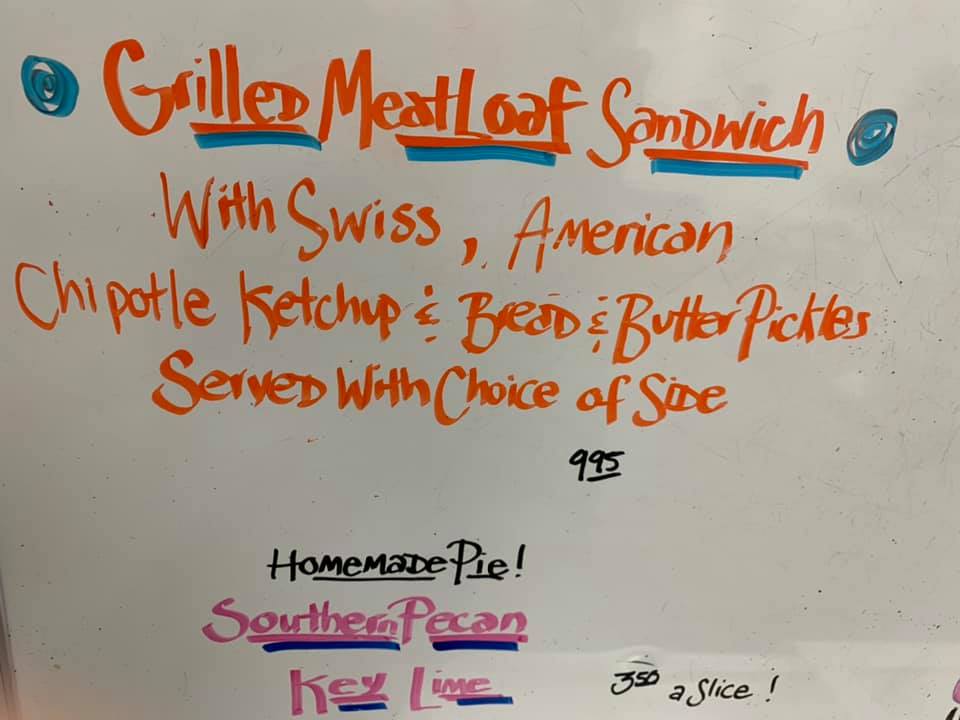 Grilled Meatloaf Sandwich
With Swiss, American
Chipotle Ketchup & Bread & Butter Pickles
Served With Choice of Side
995
Homemade Pie!
Southern Pecan
Key Lime 350 a slice!